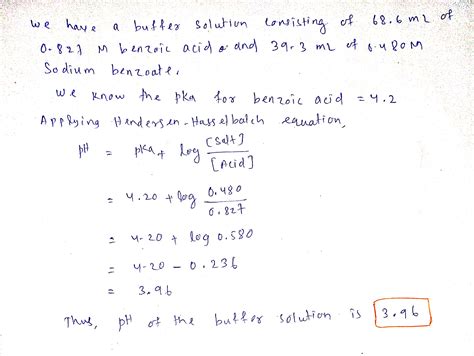 we have a buffer solution consisting of 68.6 mL of
0.827 M benzoic acid and 39.3 mL of 0.480M
Sodium benzoate.
We know the pka for benzoic acid = 4.2
Applying Hendersen-Hasselbatch equation,
pH = pKa + log [Salt]/[Acid]
= 4.20 + log 0.480/0.827
= 4.20 + log 0.580
= 4.20 - 0.236
= 3.96
Thus, pH of the buffer solution is 3.96